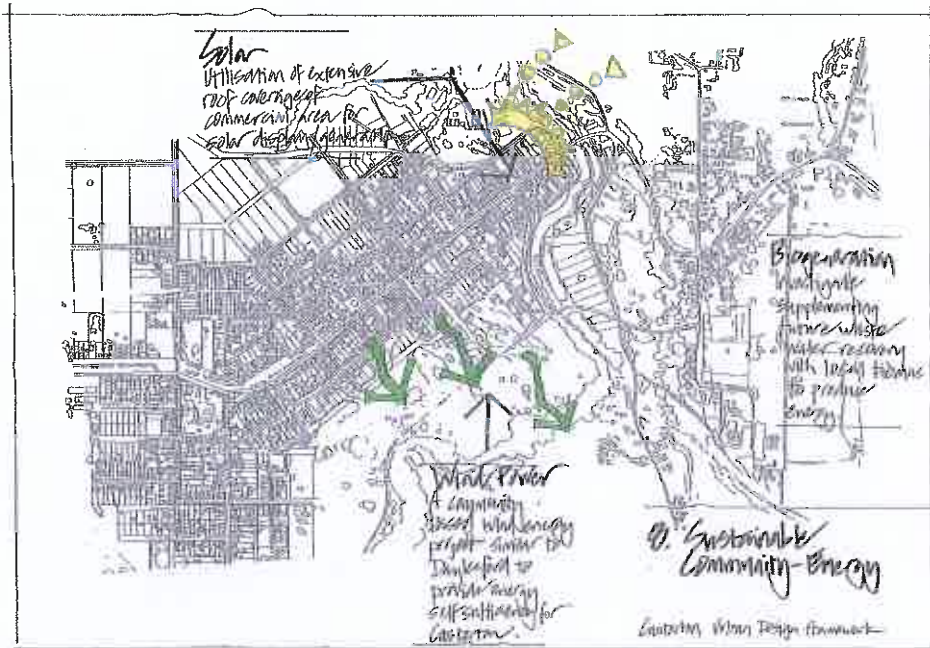 Solar
Utilisation of extensive
roof coverage of
commercial area for
solar display
Biogeneration
Investigate
supplementing
future waste
water recovery
with local
to produce
energy
Wind Power
A community
based wind energy
project similar to
Daylesford to
provide energy
self sufficiency for
Casterton.
8. Sustainable
Community-Energy
Casterton Urban Design Framework